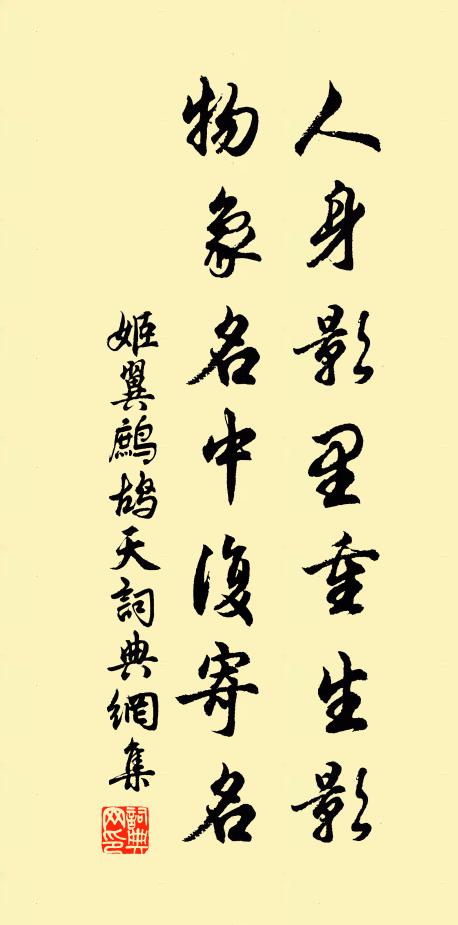 人身影里重生影
物象名中復寄名
姬翼鷓鴣天詞典網集
詞典网印